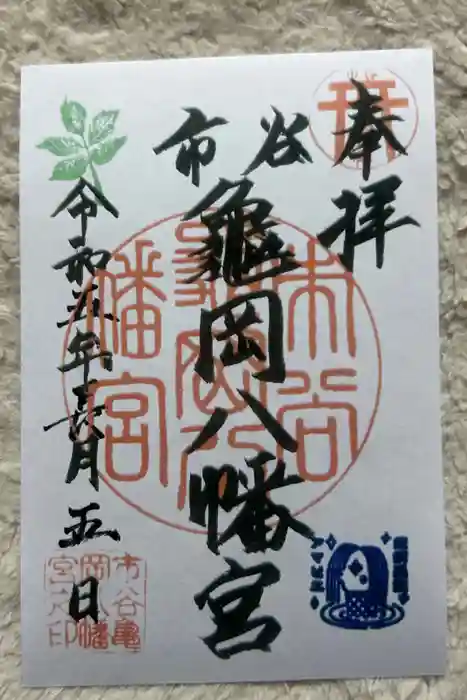 奉拝
市谷
亀岡八幡宮
令和五年七月五日
市谷亀
岡八幡
宮之印
市谷
亀岡八
幡宮